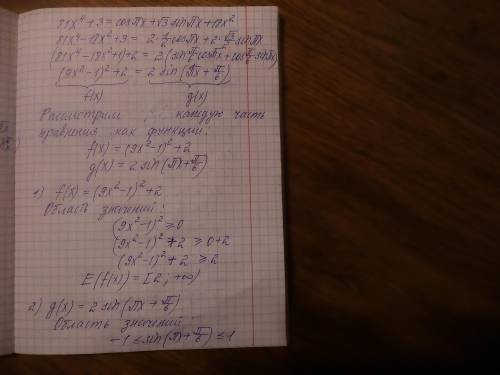 81x⁴+3=cosπx+√3sinπx+18x²
81x⁴-18x²+3=2·1/2cosπx+2·√3/2sinπx
(81x⁴-18x²+1)+2=2(sinπ/6cosπx+cosπ/6sinπx)
(9x²-1)²+2=2sin(πx+π/6)
f(x) g(x)
Рассмотрим каждую часть
уравнения как функции.
f(x)=(9x²-1)²+2
g(x)=2sin(πx+π/6)
1) f(x)=(9x²-1)²+2
Область значений:
(9x²-1)²≥0
(9x²-1)²+2≥0+2
(9x²-1)²+2≥2
E(f(x))=[2;+∞)
2) g(x)=2sin(πx+π/6)
Область значений
-1≤sin(πx+π/6)≤1